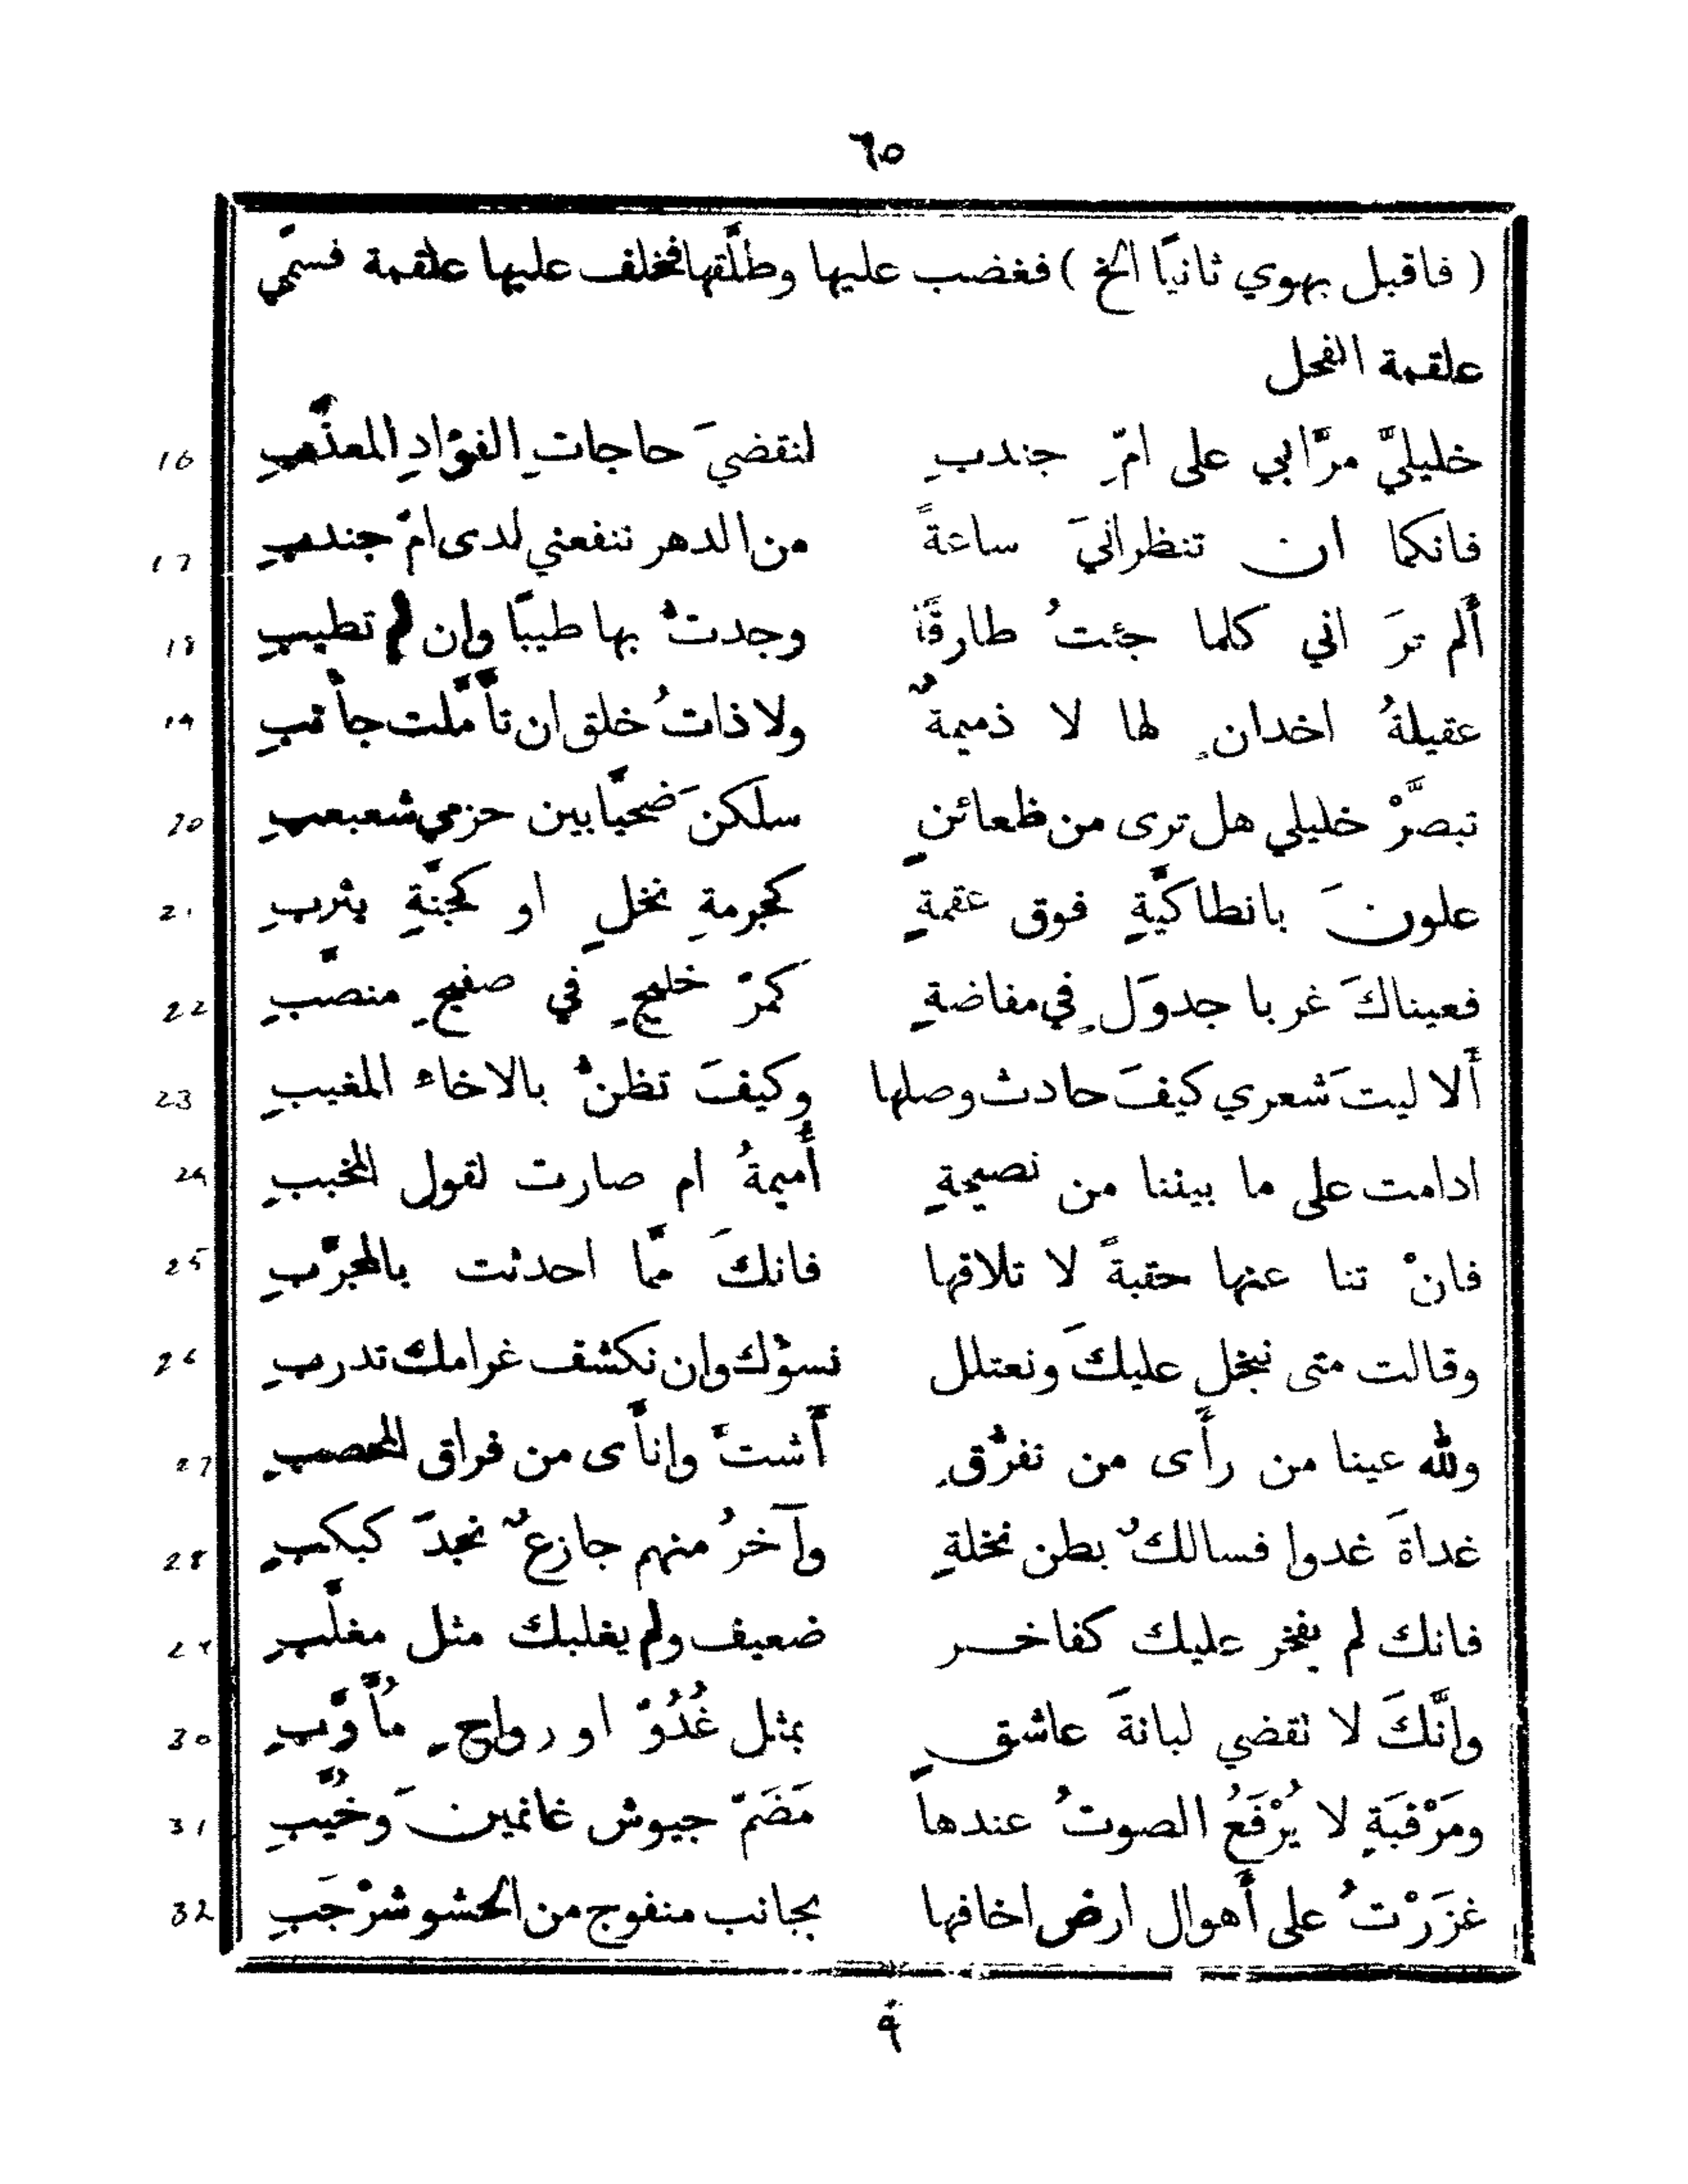 ٦٥
( فاقبل يهوي ثانيًا الخ ) فغضب عليها وطلَّقها فخلف عليها علقمة فسمّي
علقمة الفحل
خليليَّ مرَّا بي على امّ جندبِ لنقضيَ حاجاتِ الفؤادِ المعذَّبِ 16
فانكما ان تنظرانيَ ساعةً من الدهر تنفعني لدى امّ جندبِ 17
أَلم ترَ اني كلما جئتُ طارقًا وجدتُ بها طيبًا وإن لم تطيبِ 18
عقيلةُ اخدانٍ لها لا ذميمةٌ ولا ذاتُ خلق ان تأَملت جأنبِ 19
تبصَّرْ خليلي هل ترى من ظعائنٍ سلكن ضحيًّا بين حزمي شعبعبِ 20
علونَ بانطاكيَّةٍ فوق عقمةٍ كجرمةِ نخلٍ او كجنَّةِ يثربِ 21
فعيناكَ غربا جدوَلٍ في مفاضةٍ كمرّ خليجٍ في صفيحٍ منصَّبِ 22
أَلا ليتَ شعري كيفَ حادث وصلها وكيفَ تظنُّ بالاخاء المغيبِ 23
ادامت على ما بيننا من نصيحةٍ أُميمةُ ام صارت لقول المخببِ 24
فانْ تنا عنها حقبةً لا تلاقها فانكَ ممَّا احدثت بالمجرَّبِ 25
وقالت متى نبخل عليكَ ونعتلل نسؤك وإن نكشف غرامك تدربِ 26
ولله عينا من رأَى من تفرُّقٍ أَشتَّ وانأَى من فراق المحصبِ 27
غداةَ غدوا فسالكٌ بطن نخلةٍ وآخرُ منهم جازعٌ نجدَ كبكبِ 28
فانك لم يفخر عليك كفاخر ضعيف ولم يغلبك مثل مغلَّبِ 29
وإنَّكَ لا تقضي لبانةَ عاشقٍ بمثل غُدُوّ او رواحٍ مُأَوَّبِ 30
ومَرْقبَةٍ لا يُرْفَعُ الصوتُ عندها مَضَمّ جيوش غانمينَ وخُيَّبِ 31
غزَرْتُ على أَهوال ارض اخافها بجانب منفوج من الحشو شرْجَبِ 32
٩